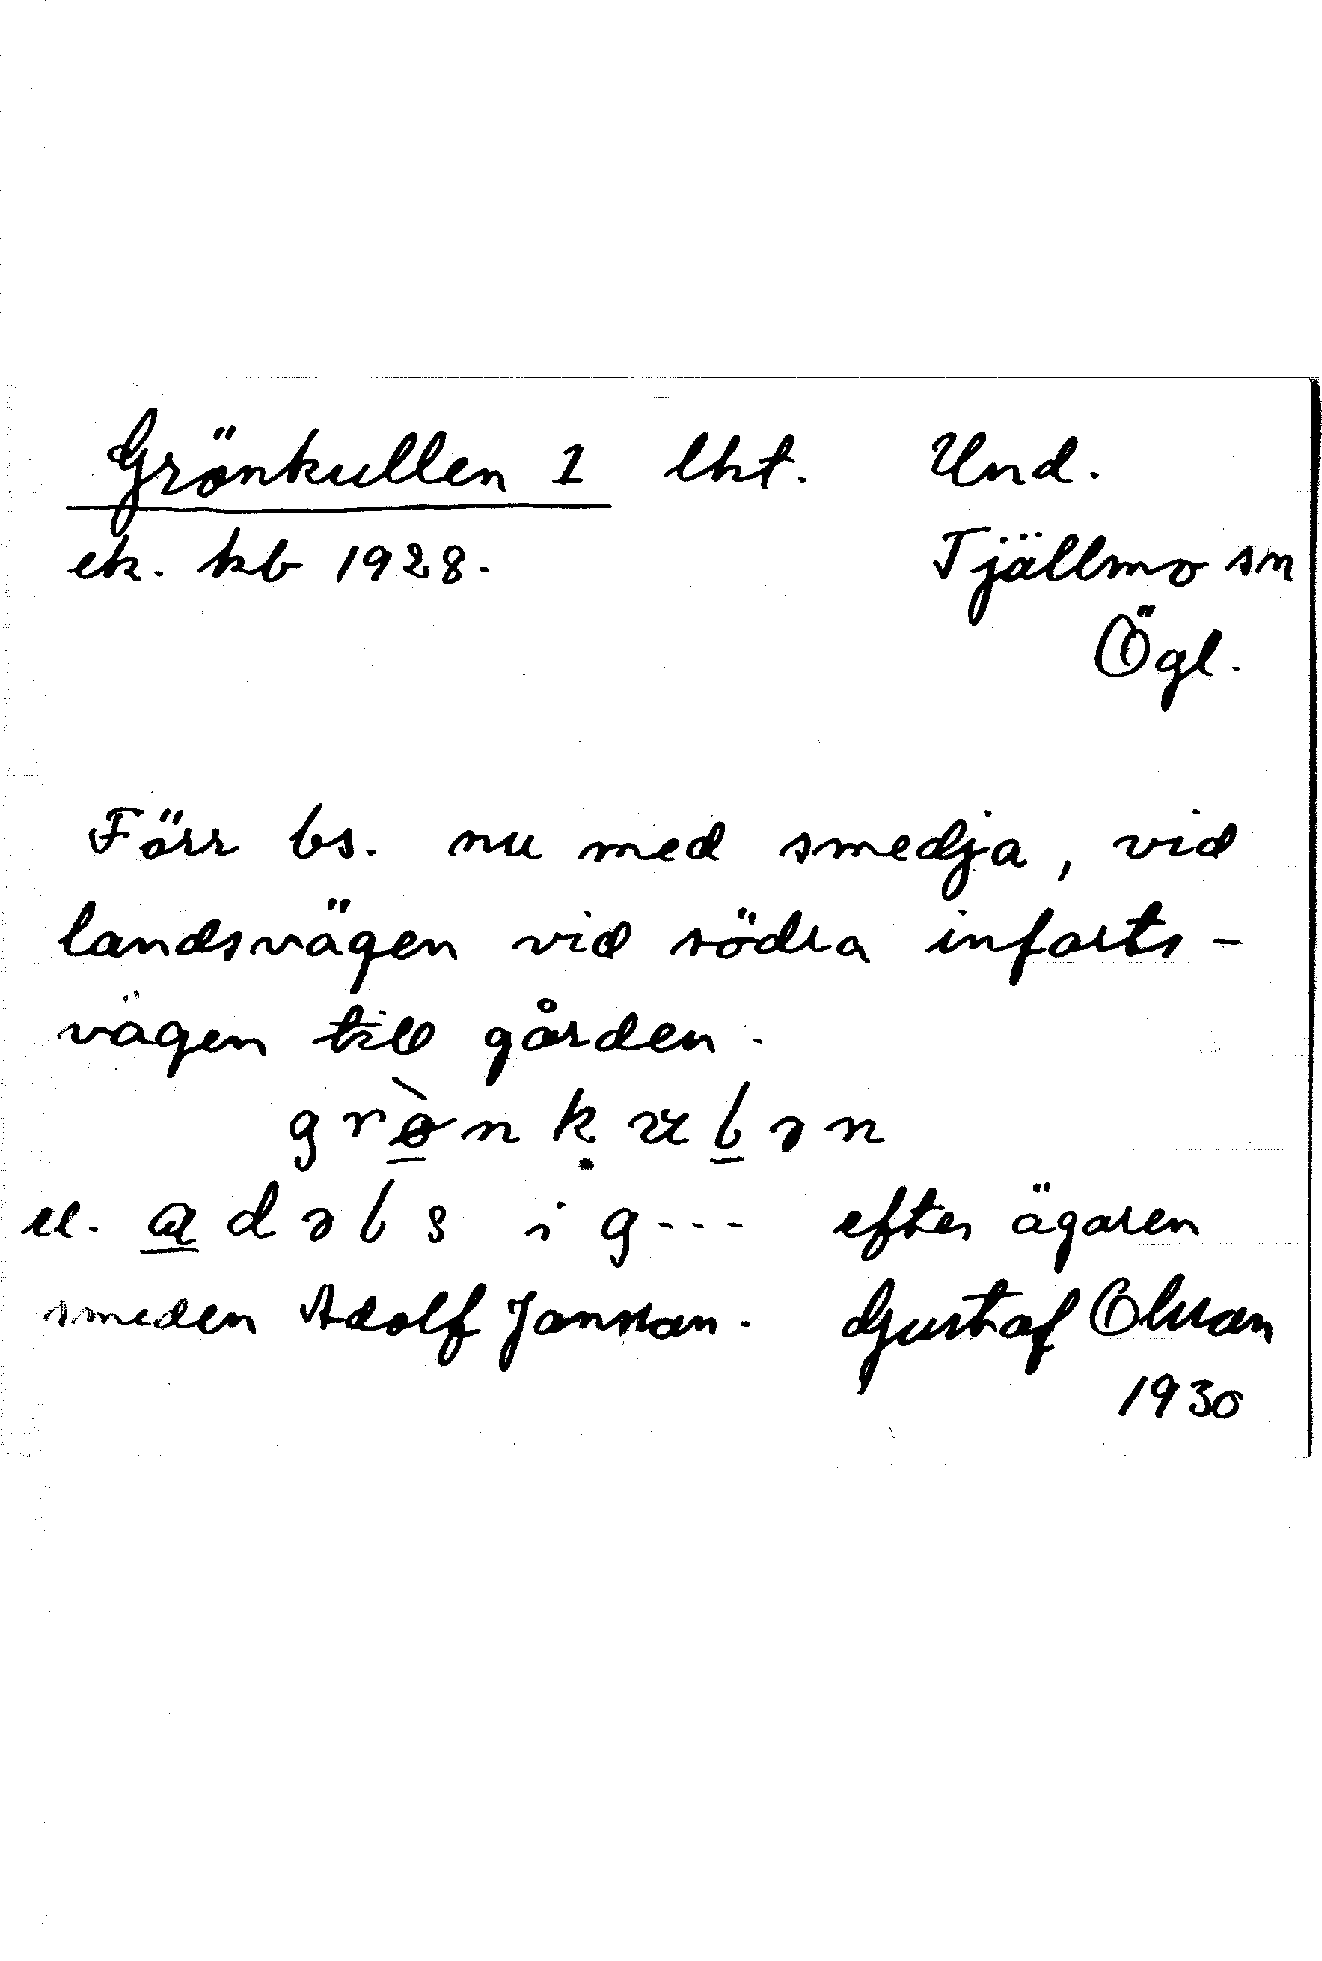 Grönkullen 1 lht. Und.
ek. kb 1928. Tjällmo sn
Ögl.
Förr bs. nu med smedja, vid
landsvägen vid södra infarts-
vägen till gården.
grø̀nkulən
el. adəls i g--- efter ägaren
smeden Adolf Jansson. Gustaf Olsson
1930